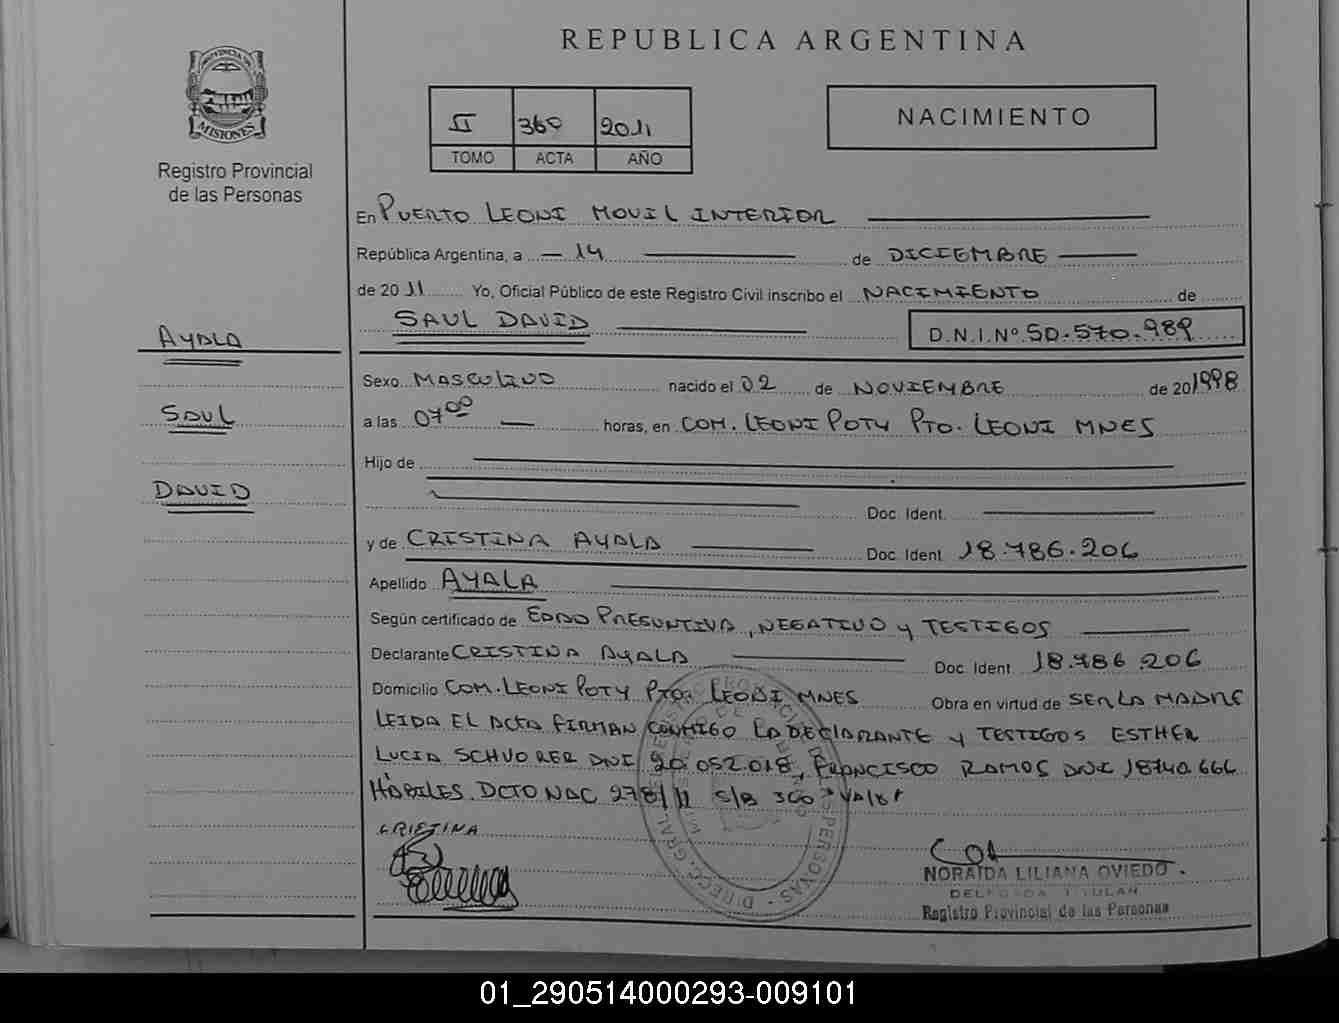 REPUBLICA ARGENTINA
PROVINCIA DE
MISIONES
Registro Provincial
de las Personas
II 360 2011
TOMO ACTA AÑO
NACIMIENTO
En PUERTO LEONI MOVIL INTERIOR
República Argentina, a 14 de DICIEMBRE
de 2011 Yo, Oficial Público de este Registro Civil inscribo el NACIMIENTO de
SAUL DAVID D.N.I.Nº 50.570.989
AYALA
SAUL
DAVID
Sexo MASCULINO nacido el 02 de NOVIEMBRE de 201998
a las 07 00 horas, en COM. LEONI POTY PTO. LEONI MNES
Hijo de
Doc. Ident.
y de CRISTINA AYALA Doc. Ident 18.786.206
Apellido AYALA
Según certificado de EDAD PRESUNTIVA, NEGATIVO y TESTIGOS
Declarante CRISTINA AYALA Doc. Ident 18.786.206
Domicilio COM. LEONI POTY PTO. LEONI MNES Obra en virtud de SER LA MADRE
LEIDA EL ACTA FIRMAN CONMIGO LA DECLARANTE y TESTIGOS ESTHER
LUCIA SCHVORER DNI 20.052.018, FRANCISCO RAMOS DNI 18740.666
HABILES. DCTO NAC 278/11 S/B 360 "VALE"
CRISTINA
NORAIDA LILIANA OVIEDO
DELEGADA TITULAR
Registro Provincial de las Personas
01_290514000293-009101